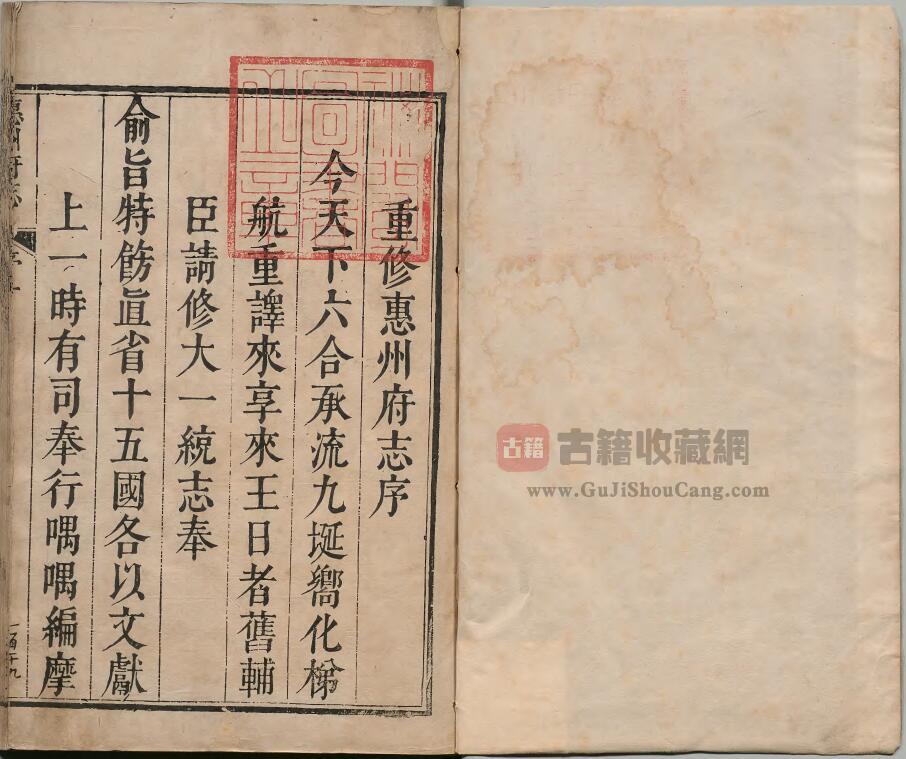 重修惠州府志序
今天下六合承流九埏嚮化梯
航重譯來享來王日者舊輔
臣請修大一統志奉
俞旨特飭直省十五國各以文獻
上一時有司奉行喁喁編摩
惠州府志
古籍
古籍收藏網
www.GuJiShouCang.com